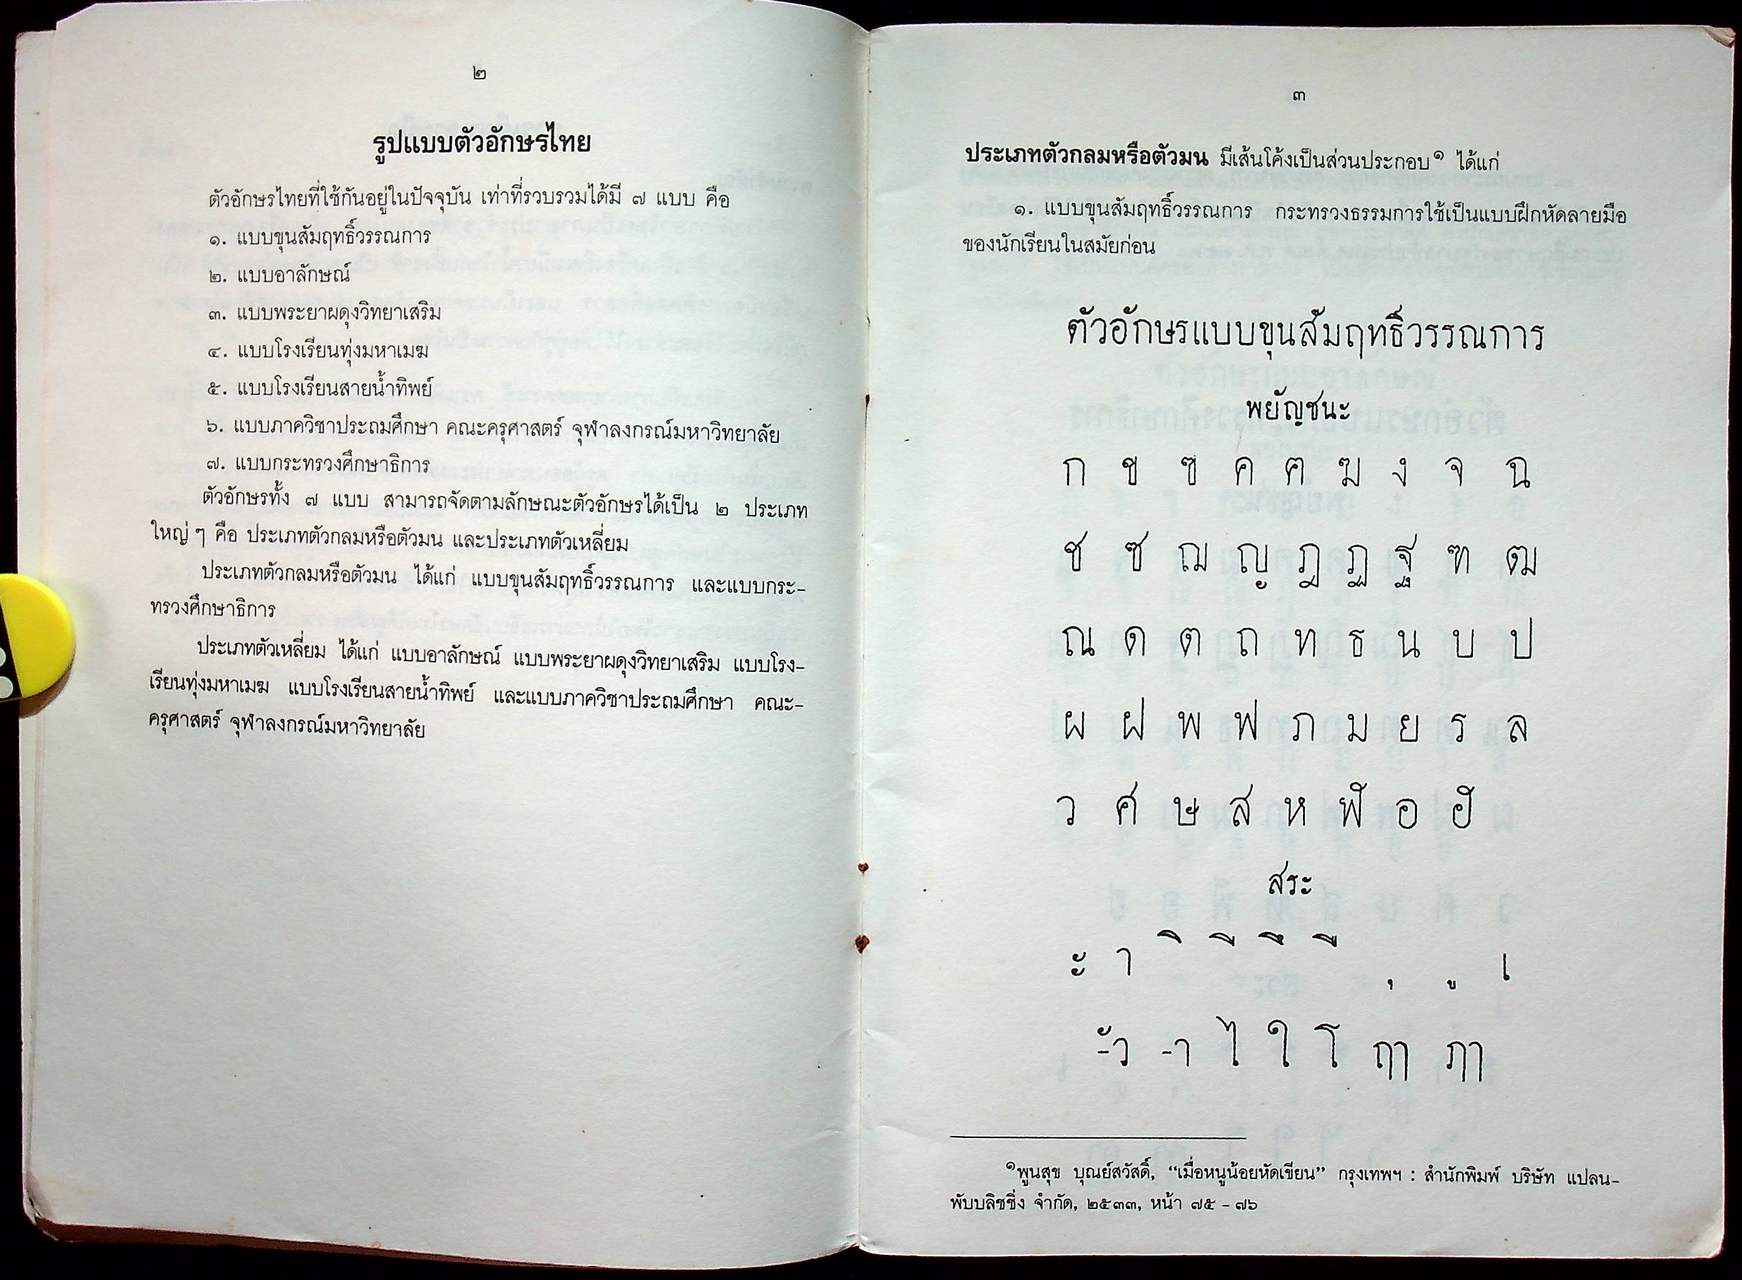 ๒
รูปแบบตัวอักษรไทย
ตัวอักษรไทยที่ใช้กันอยู่ในปัจจุบัน เท่าที่รวบรวมได้มี ๗ แบบ คือ
๑. แบบขุนสัมฤทธิ์วรรณการ
๒. แบบอาลักษณ์
๓. แบบพระยาผดุงวิทยาเสริม
๔. แบบโรงเรียนทุ่งมหาเมฆ
๕. แบบโรงเรียนสายน้ำทิพย์
๖. แบบภาควิชาประถมศึกษา คณะครุศาสตร์ จุฬาลงกรณ์มหาวิทยาลัย
๗. แบบกระทรวงศึกษาธิการ
ตัวอักษรทั้ง ๗ แบบ สามารถจัดตามลักษณะตัวอักษรได้เป็น ๒ ประเภท
ใหญ่ๆ คือ ประเภทตัวกลมหรือตัวมน และประเภทตัวเหลี่ยม
ประเภทตัวกลมหรือตัวมน ได้แก่ แบบขุนสัมฤทธิ์วรรณการ และแบบกระ-
ทรวงศึกษาธิการ
ประเภทตัวเหลี่ยม ได้แก่ แบบอาลักษณ์ แบบพระยาผดุงวิทยาเสริม แบบโรง-
เรียนทุ่งมหาเมฆ แบบโรงเรียนสายน้ำทิพย์ และแบบภาควิชาประถมศึกษา คณะ-
ครุศาสตร์ จุฬาลงกรณ์มหาวิทยาลัย
๓
ประเภทตัวกลมหรือตัวมน มีเส้นโค้งเป็นส่วนประกอบ๑ ได้แก่
๑. แบบขุนสัมฤทธิ์วรรณการ กระทรวงธรรมการใช้เป็นแบบฝึกหัดลายมือ
ของนักเรียนในสมัยก่อน
ตัวอักษรแบบขุนสัมฤทธิ์วรรณการ
พยัญชนะ
ก ข ฃ ค ฅ ฆ ง จ ฉ
ช ซ ฌ ญ ฎ ฏ ฐ ฑ ฒ
ณ ด ต ถ ท ธ น บ ป
ผ ฝ พ ฟ ภ ม ย ร ล
ว ศ ษ ส ห ฬ อ ฮ
สระ
ะ า ิ ี ึ ื ุ ู เ
-ัว -า ไ ใ โ ฤๅ ฦๅ
๑พูนสุข บุณย์สวัสดิ์, “เมื่อหนูน้อยหัดเขียน” กรุงเทพฯ : สำนักพิมพ์ บริษัท แปลน-
พับบลิชชิ่ง จำกัด, ๒๕๓๓, หน้า ๗๕ - ๗๖